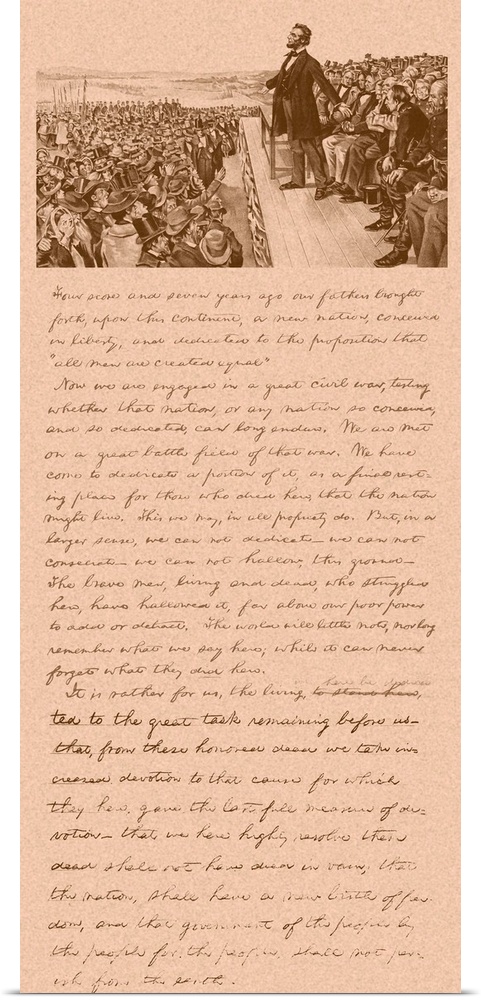 Four score and seven years ago our fathers brought
forth, upon this continent, a new nation, conceived
in liberty, and dedicated to the proposition that
"all men are created equal"
Now we are engaged in a great civil war, testing
whether that nation, or any nation so conceived,
and so dedicated, can long endure. We are met
on a great battle field of that war. We have
come to dedicate a portion of it, as a final rest-
ing place for those who died here, that the nation
might live. This we may, in all propriety do. But, in a
larger sense, we can not dedicate— we can not
consecrate— we can not hallow, this ground—
The brave men, living and dead, who struggled
here, have hallowed it, far above our poor power
to add or detract. The world will little note, nor long
remember what we say here; while it can never
forget what they did here.
It is rather for us, the living, to stand here,
here be dedica
ted to the great task remaining before us—
that, from these honored dead we take in-
creased devotion to that cause for which
they here, gave the last full measure of de-
votion— that we here highly resolve these
dead shall not have died in vain; that
the nation, shall have a new birth of free-
dom, and that government of the people by
the people for the people, shall not per-
ish from the earth.